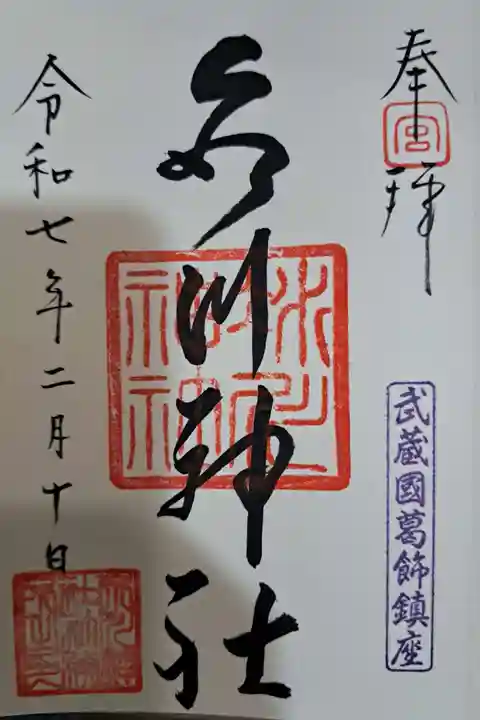 奉拝
宮
武蔵國葛飾鎮座
氷川神社
令和七年二月十日